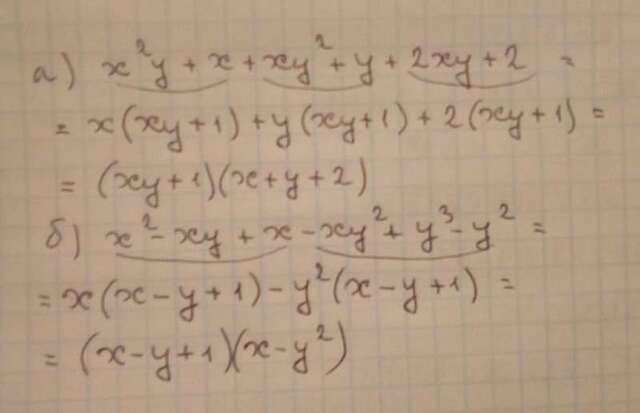 а) x²y + x + xy² + y + 2xy + 2 =
= x(xy + 1) + y(xy + 1) + 2(xy + 1) =
= (xy + 1)(x + y + 2)
б) x² - xy + x - xy² + y³ - y² =
= x(x - y + 1) - y²(x - y + 1) =
= (x - y + 1)(x - y²)